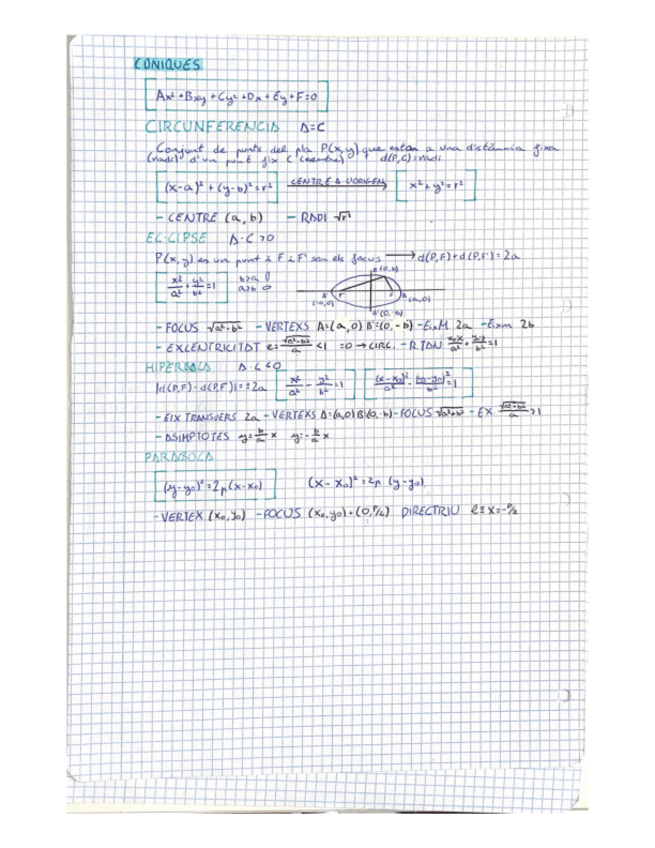 CÒNIQUES
Ax² + Bxy + Cy² + Dx + Ey + F = 0
CIRCUNFERÈNCIA A=C
Conjunt de punts del pla P(x,y) que estan a una distància fixa
(radi) d'un punt fix C (centre) d(P,C)=radi
(x-a)² + (y-b)² = r² CENTRE A L'ORIGEN x² + y² = r²
- CENTRE (a, b) - RADI √r²
EL·LIPSE A·C>0
P(x,y) es un punt i F i F' son els focus → d(P,F) + d(P,F') = 2a
x²/a² + y²/b² = 1 b>a a>b
B(0,b)
A' (-a,0) F A (a,0)
B'(0,-b)
- FOCUS √a²-b² - VERTEXS A=(a,0) B'=(0,-b) - EixM 2a - Eixm 2b
- EXCENTRICITAT e = √a²-b²/a <1 =0 → CIRC. - R.TAN x₀x/a² + y₀y/b² = 1
HIPÈRBOLA A·C<0
|d(P,F) - d(P,F')| = ±2a x²/a² - y²/b² = 1 (x-x₀)²/a² - (y-y₀)²/b² = 1
- EIX TRANSVERS 2a - VERTEXS A=(a,0) B'(0,-b) - FOCUS √a²+b² - EX √a²+b²/a >1
- ASIMPTOTES y = b/a x y = -b/a x
PARÀBOLA
(y-y₀)² = 2p(x-x₀) (x-x₀)² = 2p (y-y₀)
- VERTEX (x₀,y₀) - FOCUS (x₀,y₀) + (0,P/2) DIRECTRIU l ≡ x = -P/2